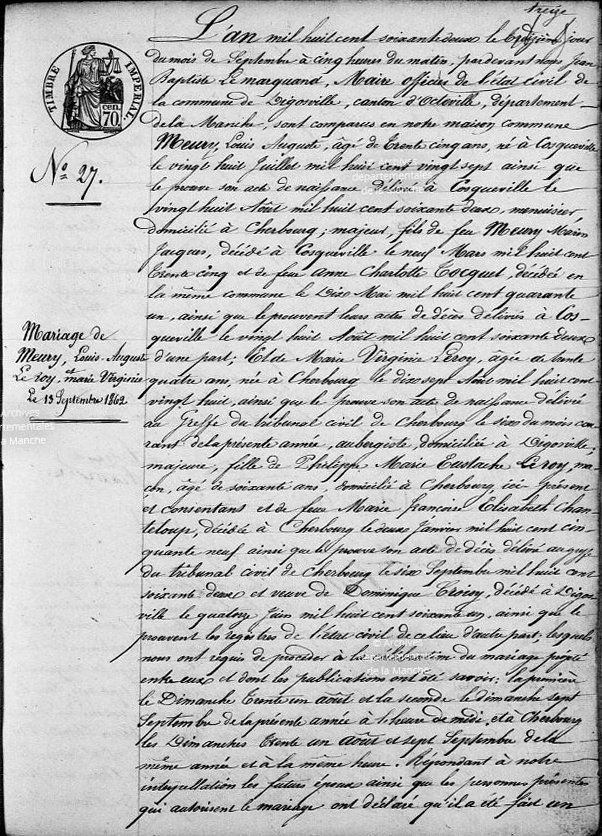 treize
L'an mil huit cent soixante deux le jour
du mois de Septembre à cinq heures du matin, par devant nous Jean
Baptiste Le marquand, Maire officier de l'état civil de
la commune de Digosville, canton d'Octeville, département
de la Manche, sont comparus en notre maison commune
Meury, Louis Auguste, âgé de trente cinq ans, né à Cosqueville
le vingt huit Juillet mil huit cent vingt sept ainsi que
le prouve son acte de naissance délivré à Cosqueville le
vingt huit Août mil huit cent soixante deux, menuisier,
domicilié à Cherbourg; majeur, fils de feu Meury Marin
Jacques, décédé à Cosqueville le neuf Mars mil huit cent
trente cinq et de feue Anne Charlotte Tocquet, décédée en
la même commune le dix Mai mil huit cent quarante
un, ainsi que le prouvent leurs actes de décès délivrés à Cos-
queville le vingt huit Août mil huit cent soixante deux
d'une part; Et de Marie Virginie Leroy, âgée de trente
quatre ans, née à Cherbourg le dix sept Août mil huit cent
vingt huit, ainsi que le prouve son acte de naissance délivré
au Greffe du tribunal civil de Cherbourg le six du mois cou-
rant de la présente année, aubergiste, domiciliée à Digosville,
majeure, fille de Philippe Marie Eustache Leroy, ma-
çon, âgé de soixante ans domicilié à Cherbourg, ici présent
et consentant et de feue Marie françoise Elisabeth Chan-
teloup, décédée à Cherbourg le deux Janvier mil huit cent cin-
quante neuf ainsi que le prouve son acte de décès délivré au greffe
du tribunal civil de Cherbourg le six Septembre mil huit cent
soixante deux et veuve de Dominique, décédé à Digos-
ville le quatorze Juin mil huit cent soixante un, ainsi que le
prouvent les registres de l'état civil de ce lieu d'autre part; lesquels
nous ont requis de procéder à la célébration du mariage projeté
entre eux et dont les publications ont été savoir; la première
le Dimanche trente un août et la seconde le dimanche sept
Septembre de la présente année à l'heure de midi, et à Cherbourg
les Dimanches trente un Août et sept Septembre de la
même année et à la même heure. Répondant à notre
interpellation les futurs époux ainsi que les personnes présentes
qui autorisent le mariage ont déclaré qu'il a été fait un
TIMBRE IMPERIAL
70 cen.
No. 27.
Mariage de
Meury, Louis Auguste
et
Le roy, marie Virginie
Le 13 Septembre 1862
Archives
départementales
de la Manche
Archives
départementales
de la Manche
de la Manche